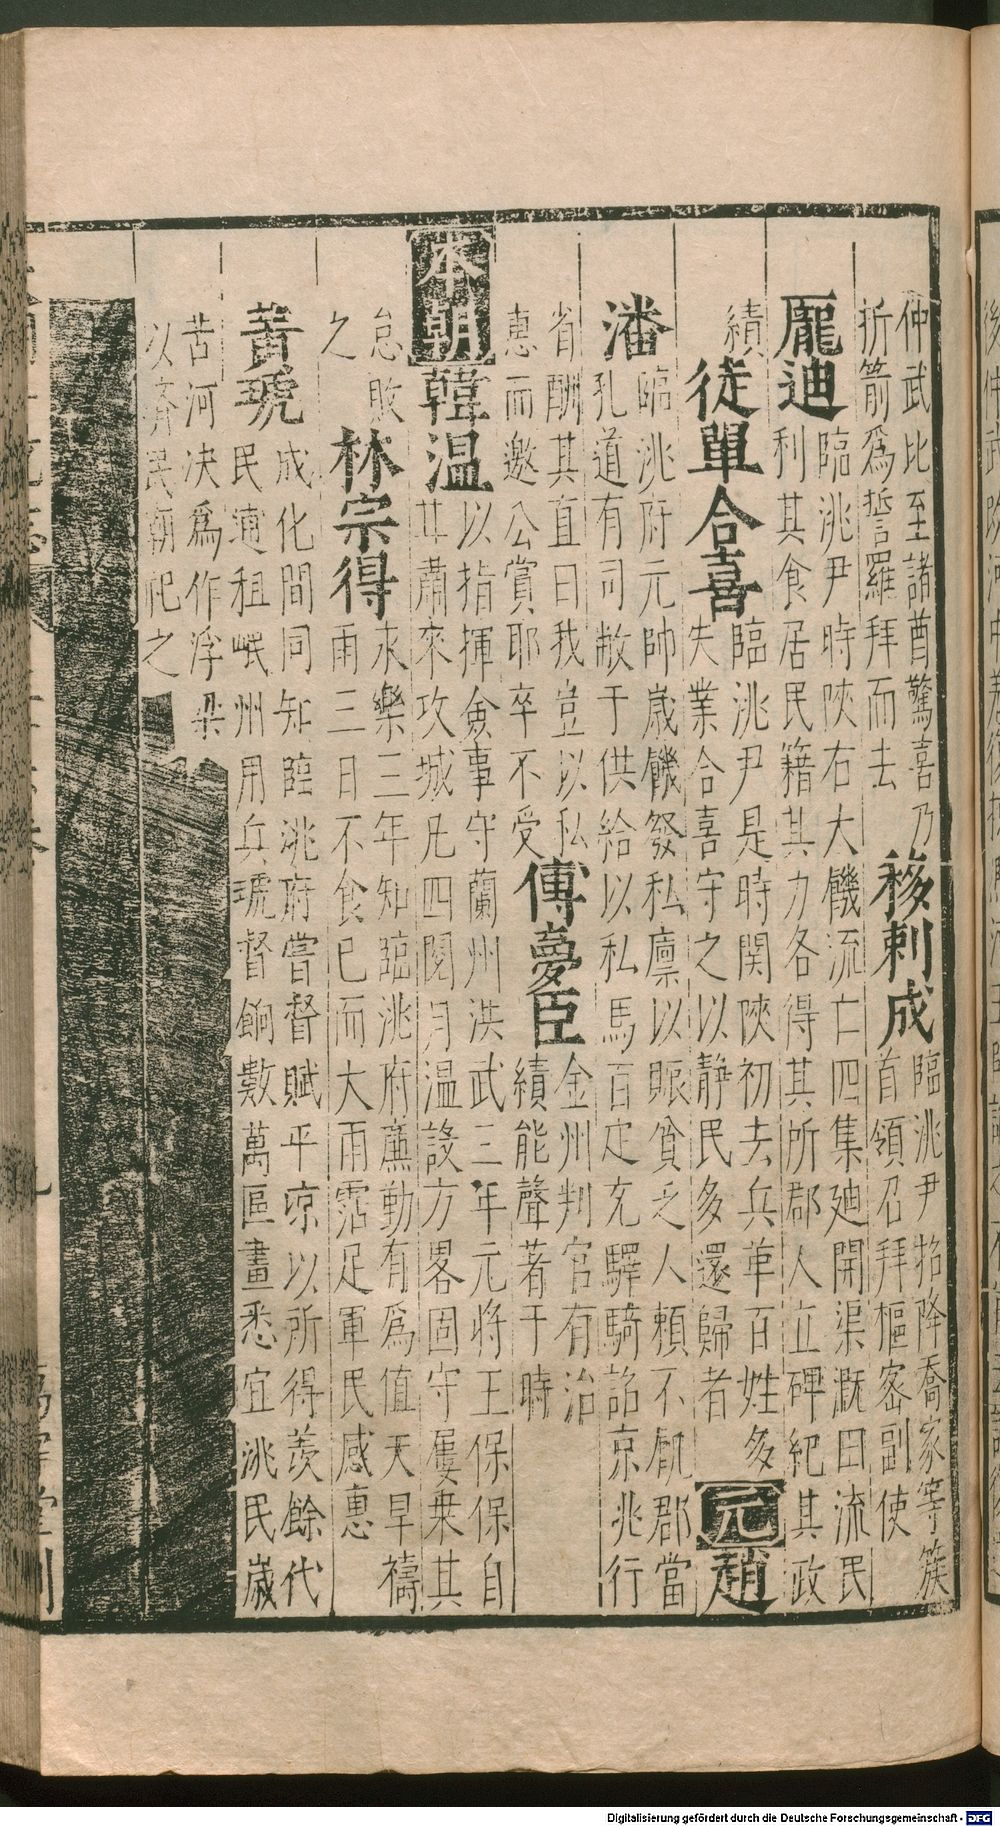 仲武比至諸酋驚喜乃
折箭爲誓羅拜而去
移剌成
臨洮尹招降喬家等簇
首領召拜樞密副使
龐迪
臨洮尹時陝右大饑流亡四集廸開渠溉田流民
利其食居民籍其力各得其所郡人立碑紀其政
績
徒單合喜
臨洮尹是時関陝初去兵革百姓多
失業合喜守之以靜民多還歸者
元
趙
潘
臨洮府元帥歲饑發私廪以賑貧乏人頼不飢郡當
孔道有司敝于供給以私馬百疋充驛騎詔京兆行
省酬其直曰我豈以私
惠而邀公賞耶卒不受
傅夢臣
金州判官有治
績能聲著于時
本朝
韓温
以指揮僉事守蘭州洪武三年元将王保保自
甘肅來攻城凡四閱月温設方畧固守屢乗其
怠敗
之
林宗得
永樂三年知臨洮府亷勤有爲值天旱禱
雨三日不食已而大雨霑足軍民感惠
黃琥
成化間同知臨洮府嘗督賦平凉以所得羨餘代
民逋租岷州用兵琥督餉數萬區畫悉宜洮民歲
苦河决爲作浮梁
以濟民廟祀之
Digitalisierung gefördert durch die Deutsche Forschungsgemeinschaft - DFG